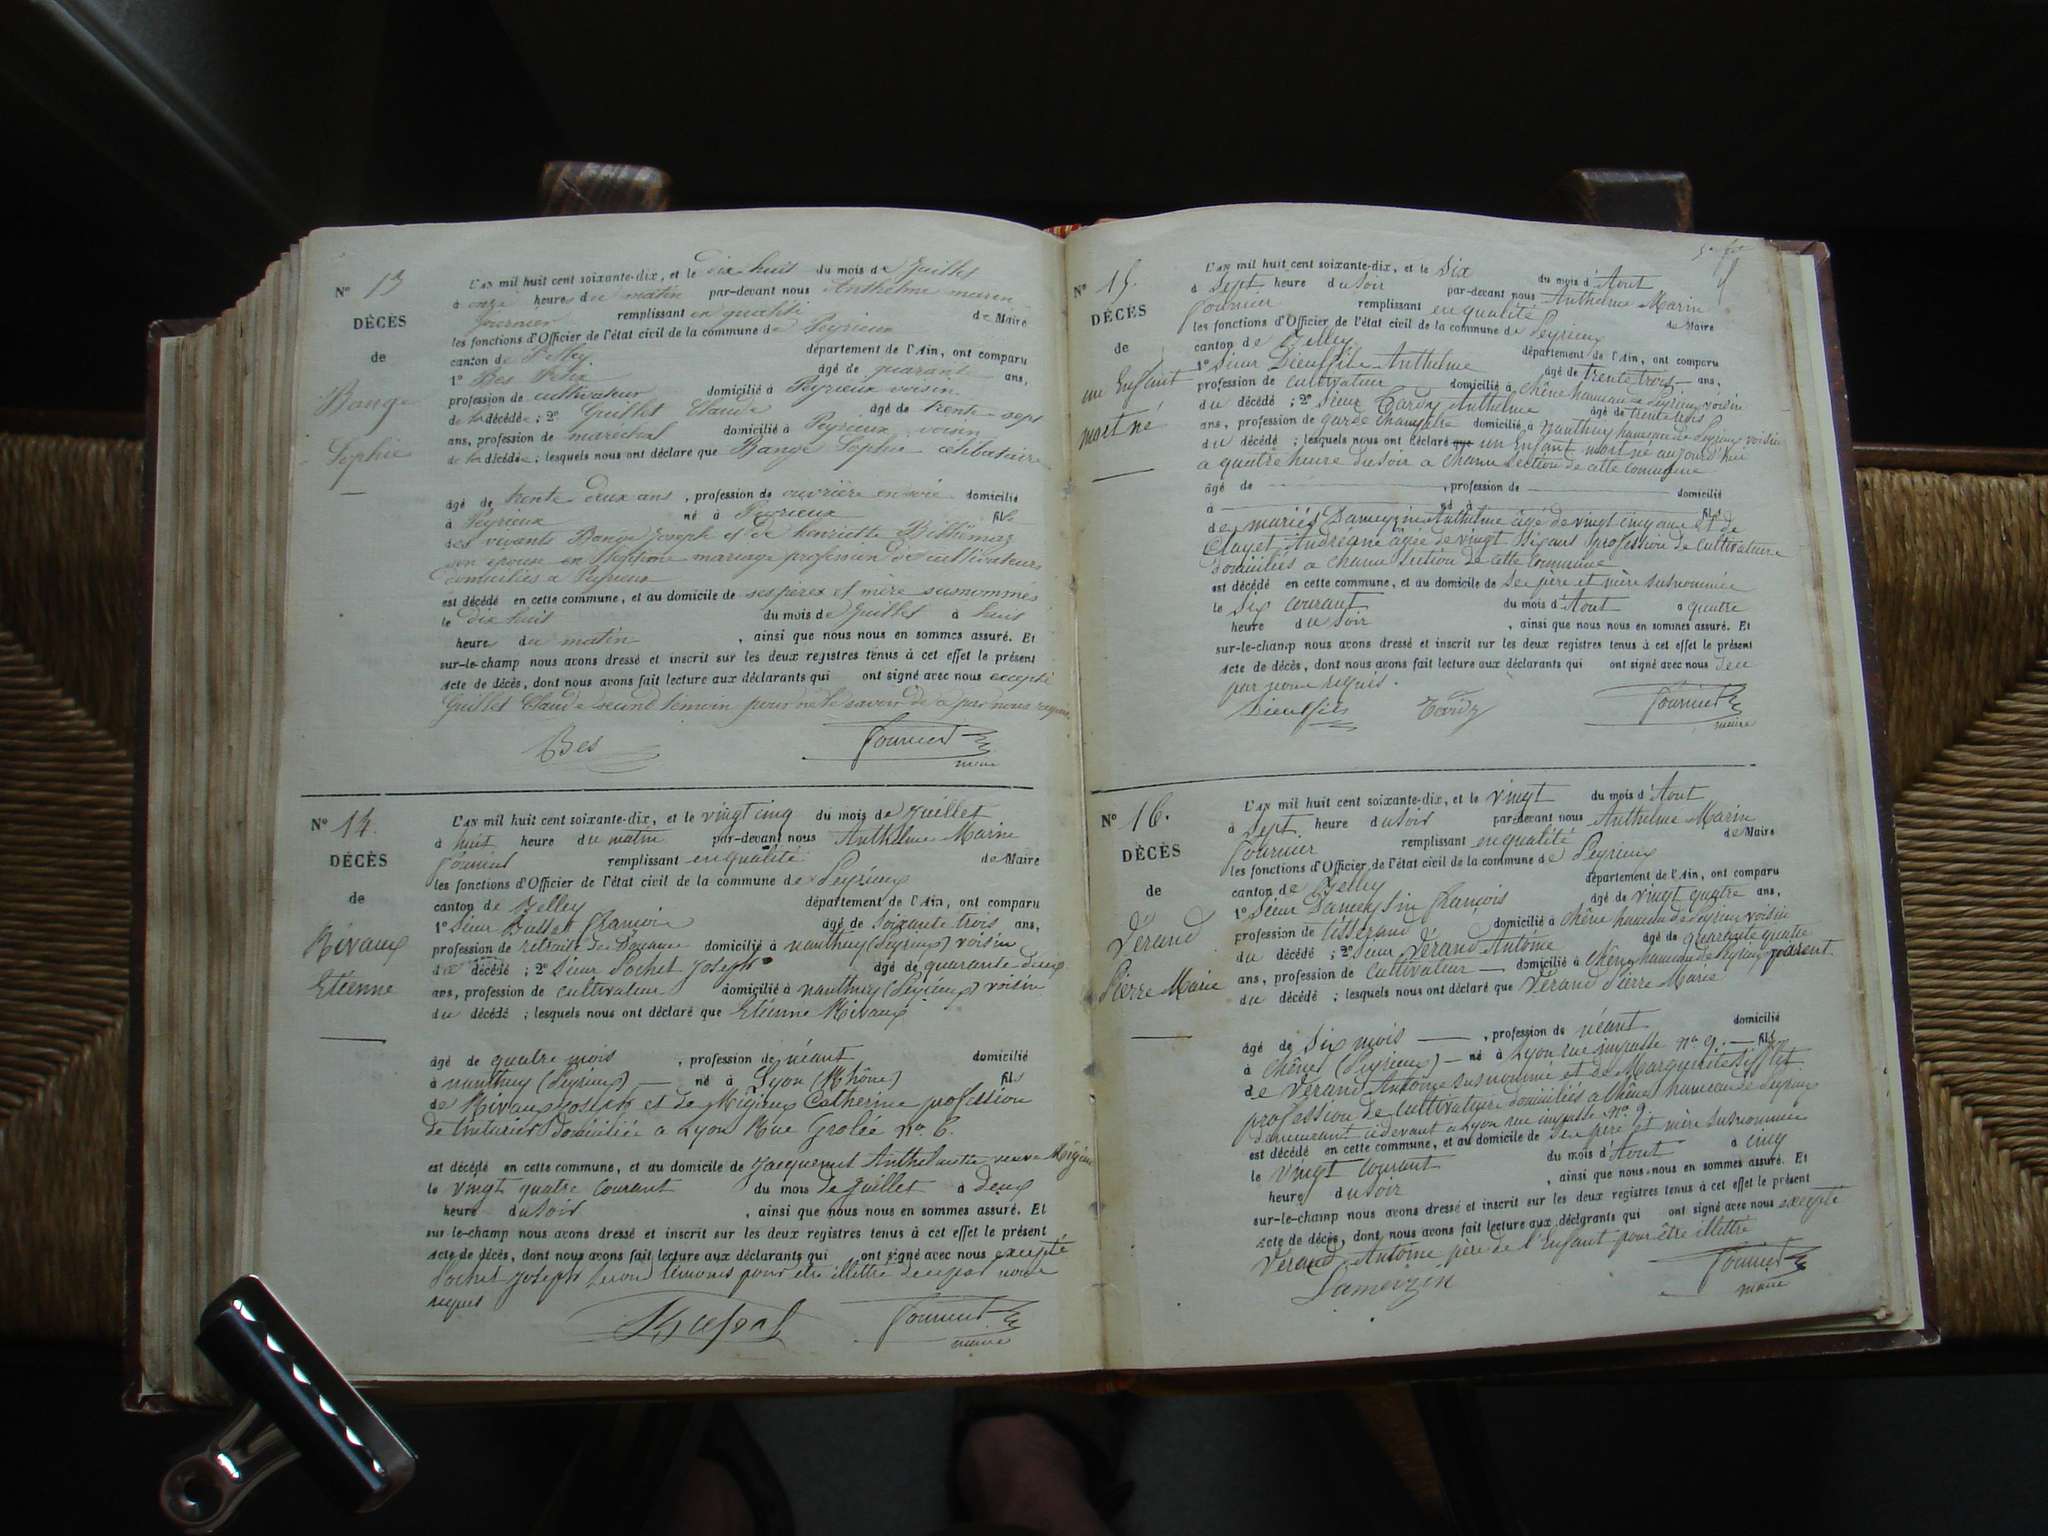 N° 13
DÉCÈS
de
Bange
Sophie
L'AN mil huit cent soixante-dix, et le dix huit du mois de Juillet
à onze heures du matin par-devant nous Anthelme marin
fournier remplissant en qualité de Maire
les fonctions d'Officier de l'état civil de la commune de Peyrieux
canton de Belley département de l'Ain, ont comparu
1° Bes Félix âgé de quarante ans,
profession de cultivateur domicilié à Peyrieux voisin
de la décédée ; 2° Guillet Claude âgé de trente-sept
ans, profession de maréchal domicilié à Peyrieux voisin
de la décédée ; lesquels nous ont déclaré que Bange Sophie célibataire
âgé de trente deux ans, profession de ouvrière en soie domicilié
à Peyrieux né à Peyrieux fille
des vivants Bange Joseph et de henriette
son épouse en mariage profession de cultivateurs
domiciliés à Peyrieux
est décédé en cette commune, et au domicile de ses père et mère susnommés
le dix huit du mois de Juillet à huit
heure du matin, ainsi que nous nous en sommes assuré. Et
sur-le-champ nous avons dressé et inscrit sur les deux registres tenus à cet effet le présent
acte de décès, dont nous avons fait lecture aux déclarants qui ont signé avec nous excepté
Guillet Claude second témoin pour ne le savoir de ce par nous requis
Bes Fournier
maire
N° 14.
DÉCÈS
de
Rivaux
Etienne
L'AN mil huit cent soixante-dix, et le vingt cinq du mois de Juillet
à huit heure du matin par-devant nous Anthelme Marin
fournier remplissant en qualité de Maire
les fonctions d'Officier de l'état civil de la commune de Peyrieux
canton de Belley département de l'Ain, ont comparu
1° Sieur françois âgé de Soixante trois ans,
profession de retraité de Douane domicilié à nanthuy (Peyrieux) voisin
du décédé ; 2° Sieur Pochet Joseph âgé de quarante-deux
ans, profession de cultivateur domicilié à nanthuy (Peyrieux) voisin
du décédé ; lesquels nous ont déclaré que Etienne Rivaux
âgé de quatre mois, profession de néant domicilié
à nanthuy (Peyrieux) né à Lyon (Rhône) fils
de Rivaux Joseph et de Migieux Catherine profession
de teinturier domiciliés à Lyon Rue Grolée n° 6.
est décédé en cette commune, et au domicile de Jacquemet veuve Migieux
le vingt quatre courant du mois de Juillet à deux
heure du soir, ainsi que nous nous en sommes assuré. Et
sur-le-champ nous avons dressé et inscrit sur les deux registres tenus à cet effet le présent
acte de décès, dont nous avons fait lecture aux déclarants qui ont signé avec nous excepté
Pochet Joseph second témoins pour être illettré de ce par nous
requis
Fournier
maire
N° 15.
DÉCÈS
de
un Enfant
mort né
L'AN mil huit cent soixante-dix, et le Six du mois d'Aout
à Sept heure du soir par-devant nous Anthelme Marin
fournier remplissant en qualité de Maire
les fonctions d'Officier de l'état civil de la commune de Peyrieux
canton de Belley département de l'Ain, ont comparu
1° Sieur Dieuffils Anthelme âgé de trente trois ans,
profession de Cultivateur domicilié à Chêne hameau de Peyrieux voisin
du décédé ; 2° Sieur Tardy Anthelme âgé de trente trois
ans, profession de garde champêtre domicilié à nanthuy hameau de Peyrieux voisin
du décédé ; lesquels nous ont déclaré que un Enfant mort né aujourd'hui
a quatre heure du soir a Section de cette Commune
âgé de, profession de domicilié
à né à fils
de mariés Dameyzin Anthelme âgé de vingt cinq ans et de
Clayet Andréane agée de vingt Six ans profession de Cultivateur
domiciliés a Section de cette Commune
est décédé en cette commune, et au domicile de Ses père et mère susnommés
le Six courant du mois d'Aout à quatre
heure du soir, ainsi que nous nous en sommes assuré. Et
sur-le-champ nous avons dressé et inscrit sur les deux registres tenus à cet effet le présent
acte de décès, dont nous avons fait lecture aux déclarants qui ont signé avec nous de ce
par nous requis.
Dieuffils Tardy Fournier
maire
N° 16.
DÉCÈS
de
Vérand
Pierre Marie
L'AN mil huit cent soixante-dix, et le vingt du mois d'Aout
à Sept heure du soir par-devant nous Anthelme Marin
fournier remplissant en qualité de Maire
les fonctions d'Officier de l'état civil de la commune de Peyrieux
canton de Belley département de l'Ain, ont comparu
1° Sieur Dameyzin françois âgé de vingt quatre ans,
profession de tisserand domicilié à Chêne hameau de Peyrieux voisin
du décédé ; 2° Sieur Vérand Antoine âgé de quarante quatre
ans, profession de Cultivateur domicilié à Chêne hameau de Peyrieux parent
du décédé ; lesquels nous ont déclaré que Vérand Pierre Marie
âgé de Six mois, profession de néant domicilié
à Chêne (Peyrieux) né à Lyon rue impasse n° 9. fils
de Vérand Antoine susnommé et de Marguerite
profession de Cultivateur domiciliés a Chêne hameau de Peyrieux
demeurant cidevant a Lyon rue impasse n° 9
est décédé en cette commune, et au domicile de Ses père et mère susnommés
le vingt courant du mois d'Aout à cinq
heure du soir, ainsi que nous nous en sommes assuré. Et
sur-le-champ nous avons dressé et inscrit sur les deux registres tenus à cet effet le présent
acte de décès, dont nous avons fait lecture aux déclarants qui ont signé avec nous excepté
Vérand Antoine père de l'Enfant pour être illettré
Dameyzin Fournier
maire